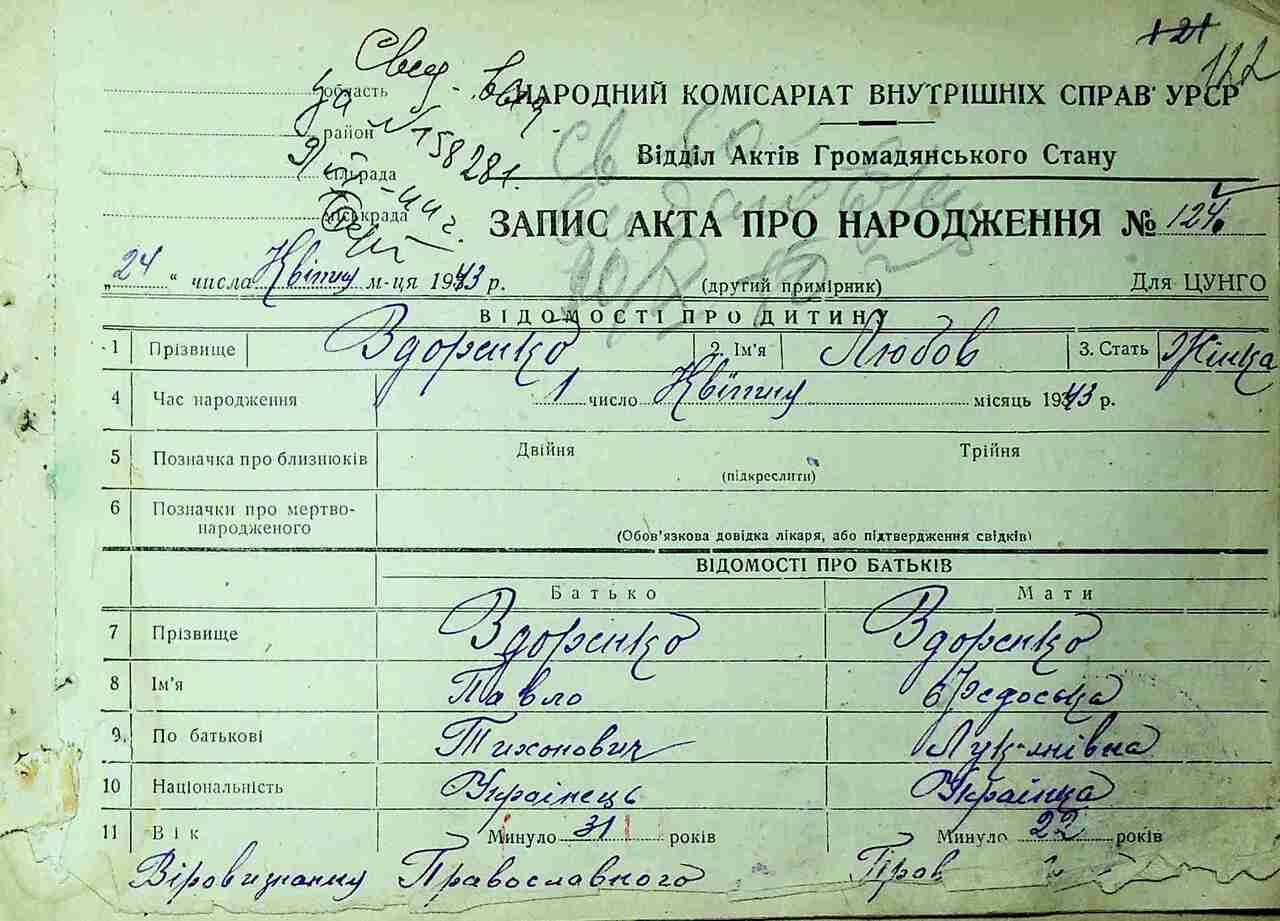 121
122
Свид-во
область
НАРОДНИЙ КОМІСАРІАТ ВНУТРІШНІХ СПРАВ УРСР
район
№ 158281.
Відділ Актів Громадянського Стану
сільрада
міськрада
ЗАПИС АКТА ПРО НАРОДЖЕННЯ № 124.
„24“ числа Квітня м-ця 1943 р.
(другий примірник)
Для ЦУНГО
ВІДОМОСТІ ПРО ДИТИНУ
1 Прізвище Здоренко 2. Ім'я Любов 3. Стать Жінка
4 Час народження 1 число Квітня місяць 1943 р.
5 Позначка про близнюків Двійня Трійня
(підкреслити)
6 Позначки про мертво-
народженого
(Обов'язкова довідка лікаря, або підтвердження свідків)
ВІДОМОСТІ ПРО БАТЬКІВ
Батько Мати
7 Прізвище Здоренко Здоренко
8 Ім'я Павло Федоська
9. По батькові Тихонович Лук'янівна
10 Національність Українець Українка
11 Вік Минуло 31 років Минуло 22 років
Віровизнання Православного Пров